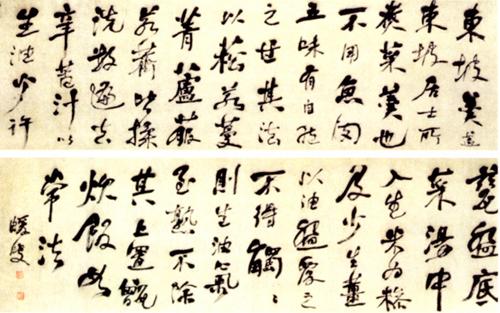 東坡羹蓋
東坡居士所
煮菜羹也
不用魚肉
五味有自然
之甘其法
以菘若蔓
菁蘆菔
若薺皆揉
洗數過去
辛苦汁以
生油少許
甆盌底
菜湯中
入生米為糝
及少生薑
以油盌覆之
不得觸々
則生油氣
至熟不除
其上置甑
炊飯如
常法